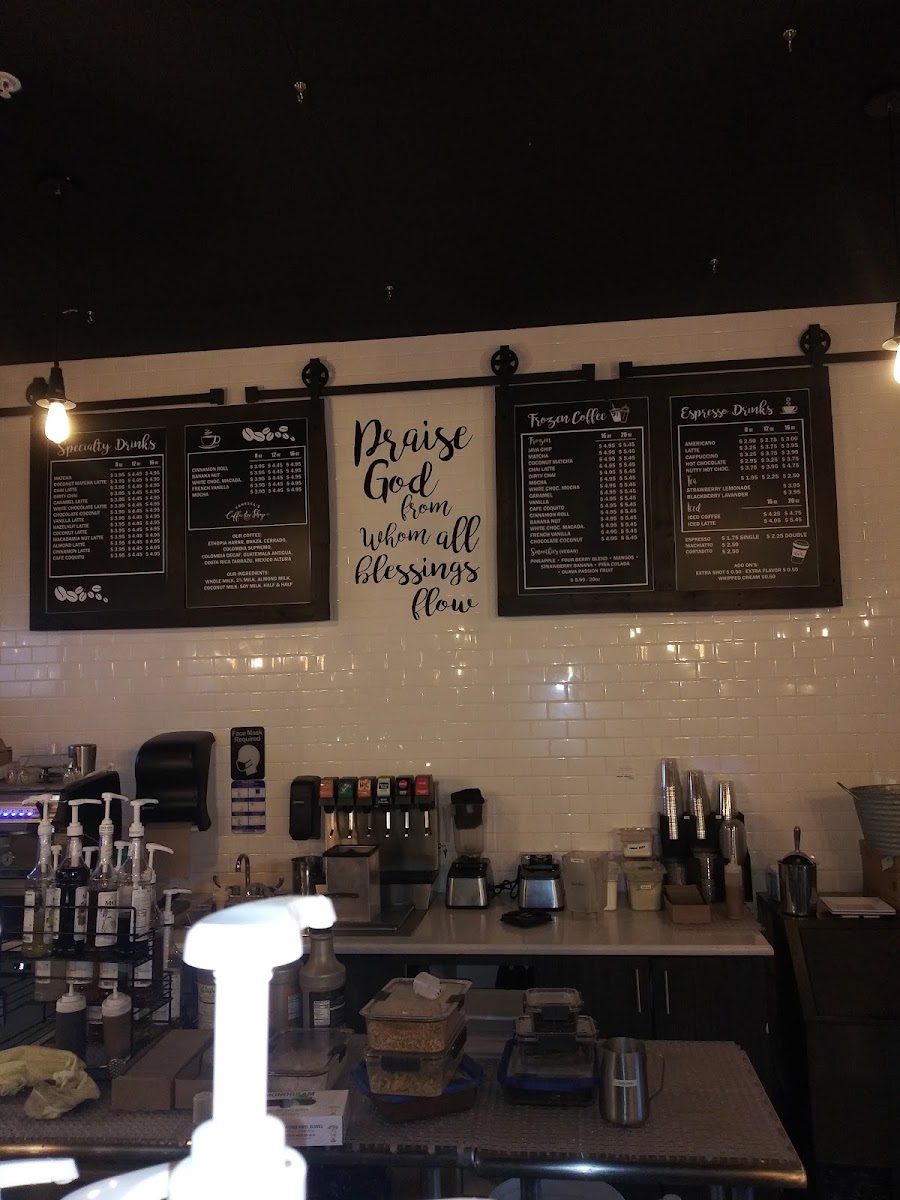 Specialty Drinks
8 oz 12 oz 16 oz
MATCHA $ 3.95 $ 4.45 $ 4.95
COCONUT MATCHA LATTE $ 3.95 $ 4.45 $ 4.95
CHAI LATTE $ 3.95 $ 4.45 $ 4.95
DIRTY CHAI $ 3.95 $ 4.45 $ 4.95
CARAMEL LATTE $ 3.95 $ 4.45 $ 4.95
WHITE CHOCOLATE LATTE $ 3.95 $ 4.45 $ 4.95
CHOCOLATE COCONUT $ 3.95 $ 4.45 $ 4.95
VANILLA LATTE $ 3.95 $ 4.45 $ 4.95
HAZELNUT LATTE $ 3.95 $ 4.45 $ 4.95
COCONUT LATTE $ 3.95 $ 4.45 $ 4.95
MACADAMIA NUT LATTE $ 3.95 $ 4.45 $ 4.95
ALMOND LATTE $ 3.95 $ 4.45 $ 4.95
CINNAMON LATTE $ 3.95 $ 4.45 $ 4.95
CAFE COQUITO $ 3.95 $ 4.45 $ 4.95
8 oz 12 oz 16 oz
CINNAMON ROLL $ 3.95 $ 4.45 $ 4.95
BANANA NUT $ 3.95 $ 4.45 $ 4.95
WHITE CHOC. MACADA. $ 3.95 $ 4.45 $ 4.95
FRENCH VANILLA $ 3.95 $ 4.45 $ 4.95
MOCHA $ 3.95 $ 4.45 $ 4.95
Coffee Shop
OUR COFFEE:
ETHIOPIA HARAR, BRAZIL CERRADO,
COLOMBIA SUPREMO,
COLOMBIA DECAF, GUATEMALA ANTIGUA,
COSTA RICA TARRAZU, MEXICO ALTURA
OUR INGREDIENTS:
WHOLE MILK, 2% MILK, ALMOND MILK,
COCONUT MILK, SOY MILK, HALF & HALF
Praise
God
from
Whom all
blessings
flow
Frozen Coffee
Frozen 16 oz 20 oz
JAVA CHIP $ 4.95 $ 5.45
MATCHA $ 4.95 $ 5.45
COCONUT MATCHA $ 4.95 $ 5.45
CHAI LATTE $ 4.95 $ 5.45
DIRTY CHAI $ 4.95 $ 5.45
MOCHA $ 4.95 $ 5.45
WHITE CHOC. MOCHA $ 4.95 $ 5.45
CARAMEL $ 4.95 $ 5.45
VANILLA $ 4.95 $ 5.45
CAFE COQUITO $ 4.95 $ 5.45
CINNAMON ROLL $ 4.95 $ 5.45
BANANA NUT $ 4.95 $ 5.45
WHITE CHOC. MACADA. $ 4.95 $ 5.45
FRENCH VANILLA $ 4.95 $ 5.45
CHOCOLATE COCONUT $ 4.95 $ 5.45
Smoothies (VEGAN)
PINEAPPLE • FOUR BERRY BLEND • MANGO •
STRAWBERRY BANANA • PIÑA COLADA
• GUAVA PASSION FRUIT
$ 5.99 - 20oz
Espresso Drinks
8 oz 12 oz 16 oz
AMERICANO $ 2.50 $ 2.75 $ 3.00
LATTE $ 3.25 $ 3.75 $ 3.95
CAPPUCCINO $ 3.25 $ 3.75 $ 3.95
HOT CHOCOLATE $ 2.95 $ 3.25 $ 3.75
NUTTY HOT CHOC. $ 3.75 $ 3.95 $ 4.75
Tea $ 1.95 $ 2.25 $ 2.50
STRAWBERRY LEMONADE $ 3.95
BLACKBERRY LAVANDER $ 3.95
Iced 16 oz 20 oz
ICED COFFEE $ 4.25 $ 4.75
ICED LATTE $ 4.95 $ 5.45
ESPRESSO $ 1.75 SINGLE $ 2.25 DOUBLE
MACHIATTO $ 2.50
CORTADITO $ 2.50
ADD ON'S:
EXTRA SHOT $ 0.50 - EXTRA FLAVOR $ 0.50
WHIPPED CREAM $0.50
Face Mask
Required